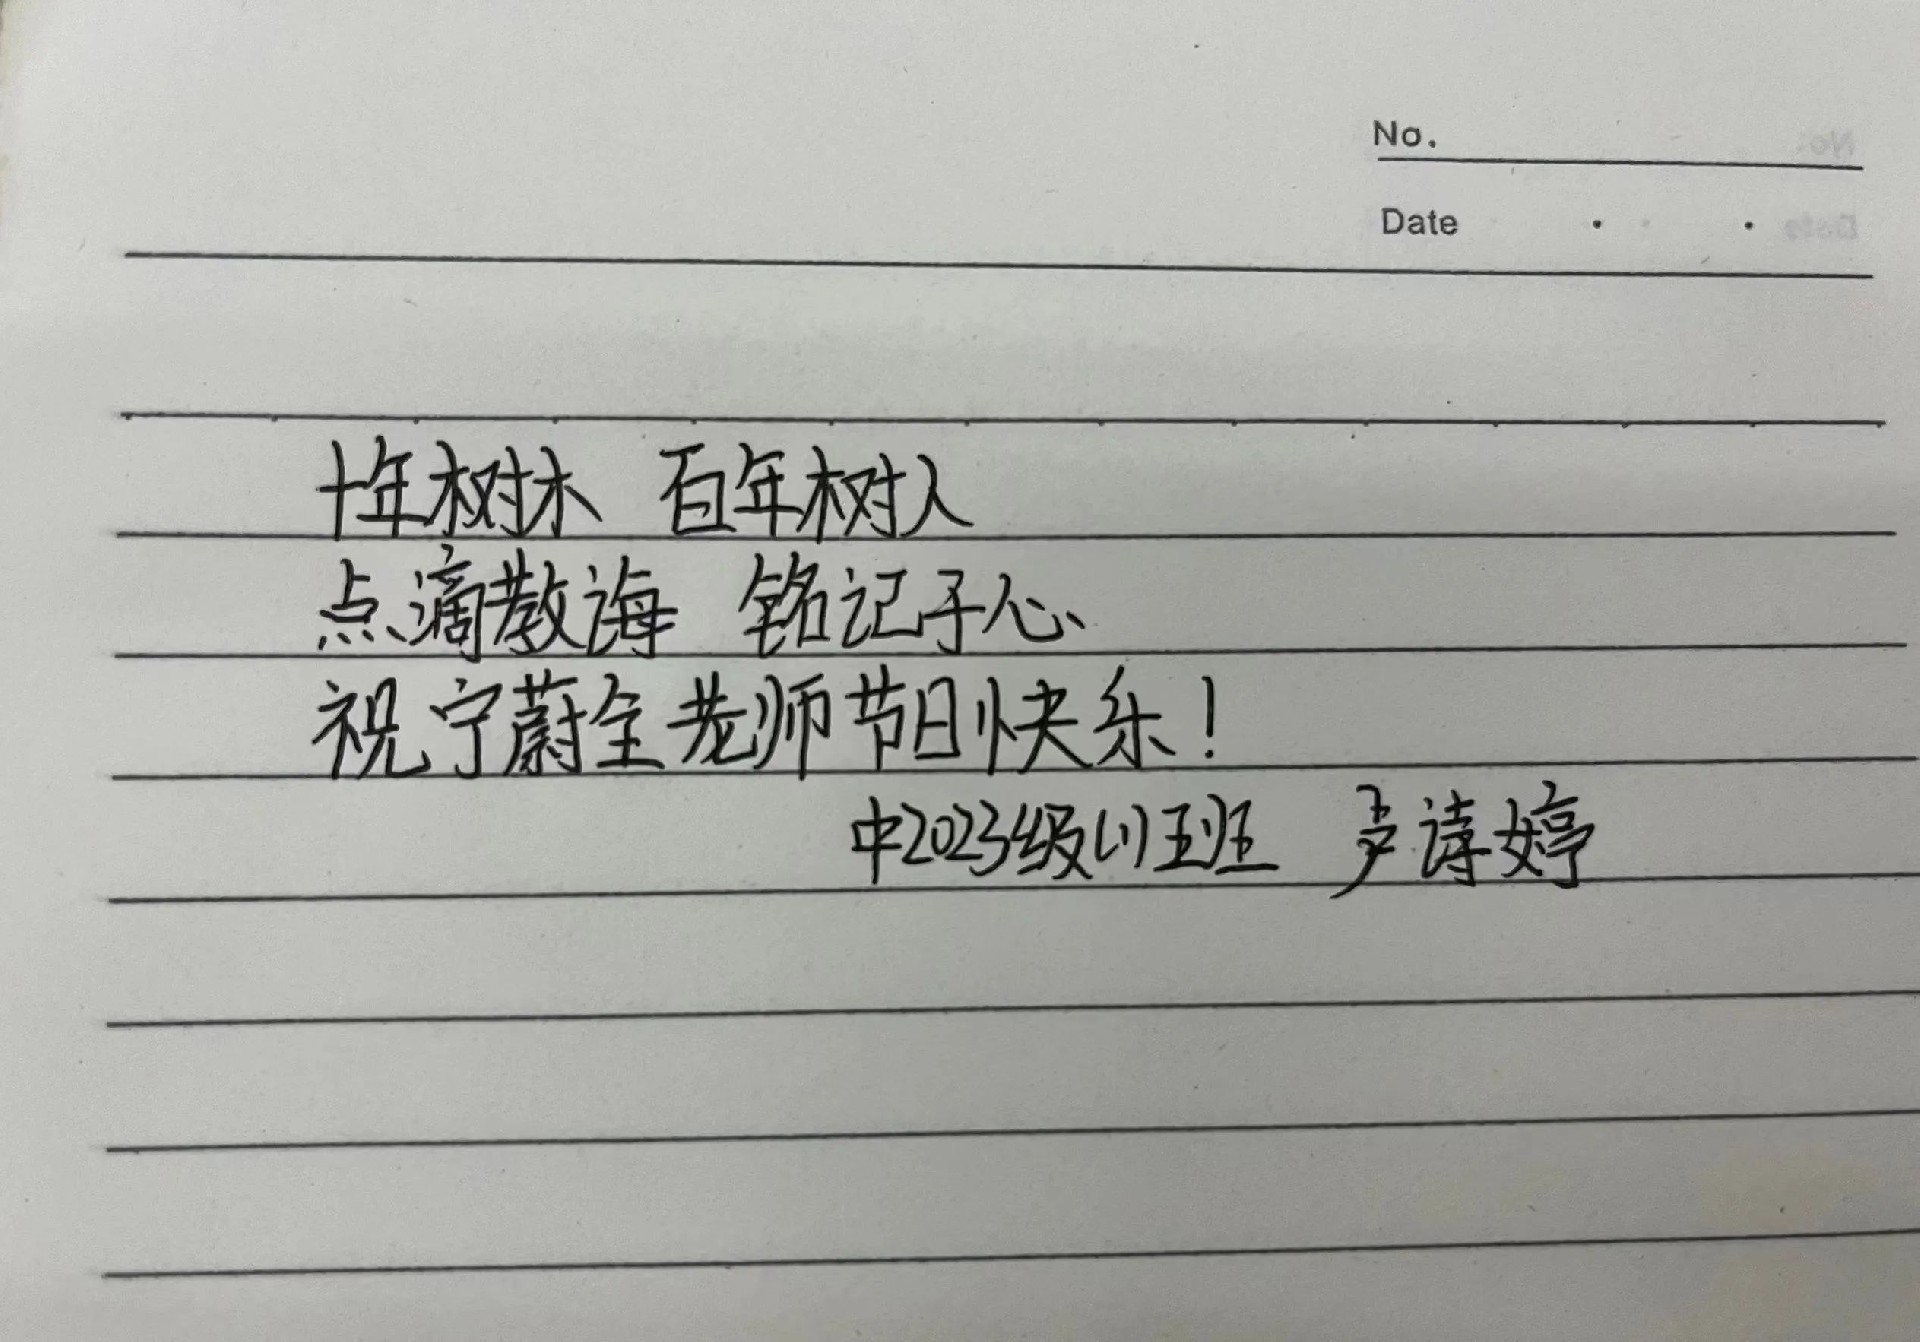 No.
Date
十年树木 百年树人
点滴教诲 铭记于心
祝宁蔚全老师节日快乐!
中2023级(1)班 卢诗婷